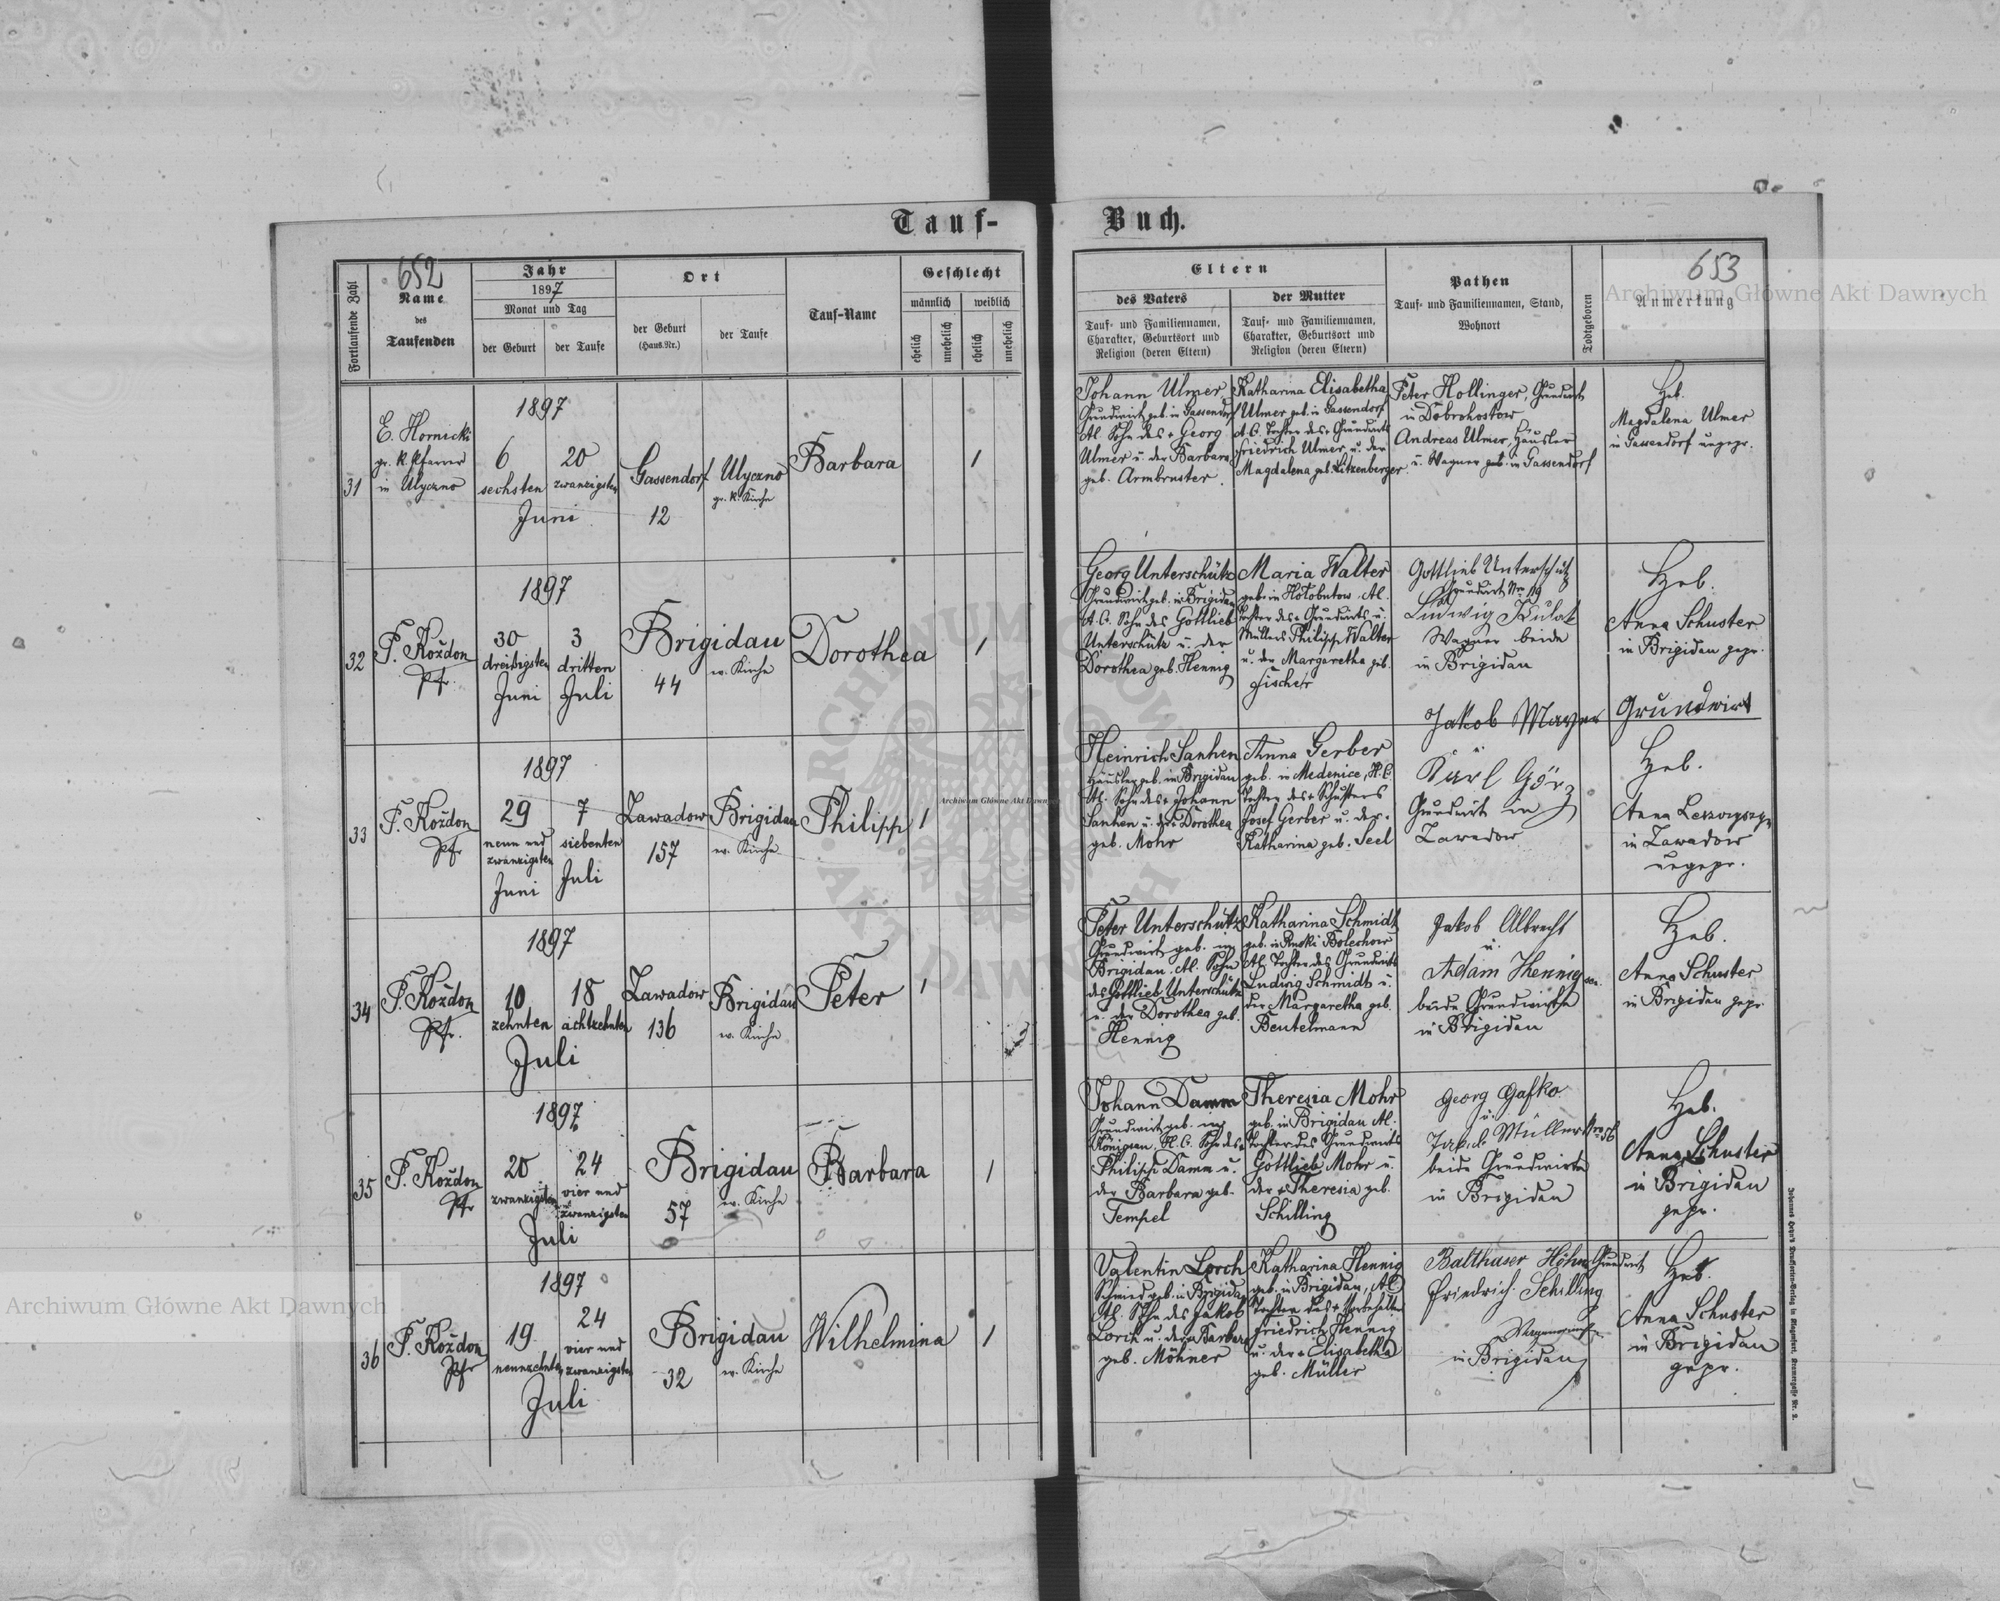 Tauf-
Buch.
Fortlaufende Zahl
652
Name
des
Taufenden
Jahr
1897
Monat und Tag
der Geburt
der Taufe
Ort
der Geburt
(Haus.Nr.)
der Taufe
Tauf-Name
Geschlecht
männlich
weiblich
ehelich
unehelich
ehelich
unehelich
Eltern
des Vaters
Tauf- und Familiennamen,
Charakter, Geburtsort und
Religion (deren Eltern)
der Mutter
Tauf- und Familiennamen,
Charakter, Geburtsort und
Religion (deren Eltern)
Pathen
Tauf- und Familiennamen, Stand,
Wohnort
Todtgeboren
653
Anmerkung
Archiwum Główne Akt Dawnych
31
E. Hornicki
gr. k. Pfarrer
in Ulyczno
1897
6
sechsten
20
zwanzigsten
Juni
Gassendorf
12
Ulyczno
gr. k. Kirche
Barbara
1
Johann Ulmer
Grundwirt geb. in Gassendorf
A.C. Sohn des + Georg
Ulmer u. der Barbara
geb. Armbruster.
Katharina Elisabetha
Ulmer geb. in Gassendorf
A.C. Tochter des + Grundwirts
Friedrich Ulmer u. der
Magdalena geb. Litzenberger.
Peter Hollinger, Grundwirt
in Dobrohostow
Andreas Ulmer, Häusler
u. Wagner geb. in Gassendorf
Heb.
Magdalena Ulmer
in Gassendorf ungepr.
32
P. Kożdon
Pfr.
1897
30
dreißigsten
Juni
3
dritten
Juli
Brigidau
44
ev. Kirche
Dorothea
1
Georg Unterschütz
Grundwirt geb. in Brigidau
A.C. Sohn des Gottlieb
Unterschütz u. der
Dorothea geb. Hennig
Maria Walter
geb. in Hołobutow A.C.
Tochter des + Grundwirts u.
Müllers Philipp Walter
u. der Margaretha geb.
Fischer
Gottlieb Unterschütz
Grundwirt Nr. 19
Ludwig Kulok
Wagner beide
in Brigidau
Jakob Mayer Grundwirt
Heb.
Anna Schuster
in Brigidau gepr.
33
P. Kożdon
Pfr
1897
29
neun und
zwanzigsten
Juni
7
siebenten
Juli
Zawadow
157
Brigidau
ev. Kirche
Philipp
1
Heinrich Sanhen
Häusler geb. in Brigidau
A.C. Sohn des + Johann
Sanhen u. der + Dorothea
geb. Mohr
Anna Gerber
geb. in Medenice, H.C.
Tochter des + Schusters
Josef Gerber u. der
Katharina geb. Seel
Karl Görz
Grundwirt in
Zawadow
Heb.
Anna
in Zawadow
ungepr.
34
P. Kożdon
Pfr.
1897
10
zehnten
18
achtzehnten
Juli
Zawadow
136
Brigidau
ev. Kirche
Peter
1
Peter Unterschütz
Grundwirt geb. in
Brigidau. A.C. Sohn
des Gottlieb Unterschütz
u. der Dorothea geb.
Hennig
Katharina Schmidt
geb. in Ruski Bolechow
A.C. Tochter des Grundwirts
Ludwig Schmidt u.
der Margaretha geb.
Beutelmann
Jakob Albrecht
u.
Adam Hennig
beide Grundwirthe
in Brigidau
Heb.
Anna Schuster
in Brigidau gepr
35
P. Kożdon
Pfr
1897
20
zwanzigsten
24
vier und
zwanzigsten
Juli
Brigidau
57
ev. Kirche
Barbara
1
Johann Damm
Grundwirt geb. in
Königsau, H.C. Sohn des
Philipp Damm u.
der Barbara geb.
Tempel
Theresia Mohr
geb. in Brigidau A.C.
Tochter des Grundwirts
Gottlieb Mohr u.
der + Theresia geb.
Schilling
Georg Gafko
u.
Jakob Müller Nro 56
beide Grundwirte
in Brigidau
Heb.
Anna Schuster
in Brigidau
gepr.
36
P. Kożdon
Pfr
1897
19
neunzehnten
24
vier und
zwanzigsten
Juli
Brigidau
32
ev. Kirche
Wilhelmina
1
Valentin Lorch
Schmied geb. in Brigidau
A.C. Sohn des Jakob
Lorch u. der Barbara
geb. Möhner
Katharina Hennig
geb. in Brigidau, A.C.
Tochter des +
Friedrich Hennig
u. der + Elisabetha
geb. Müller
Balthaser Höhn Grundwirt
Friedrich Schilling
in Brigidau
Heb.
Anna Schuster
in Brigidau
gepr.
Archiwum Główne Akt Dawnych
Archiwum Główne Akt Dawnych
ARCHIWUM GŁÓWNE AKT DAWNYCH